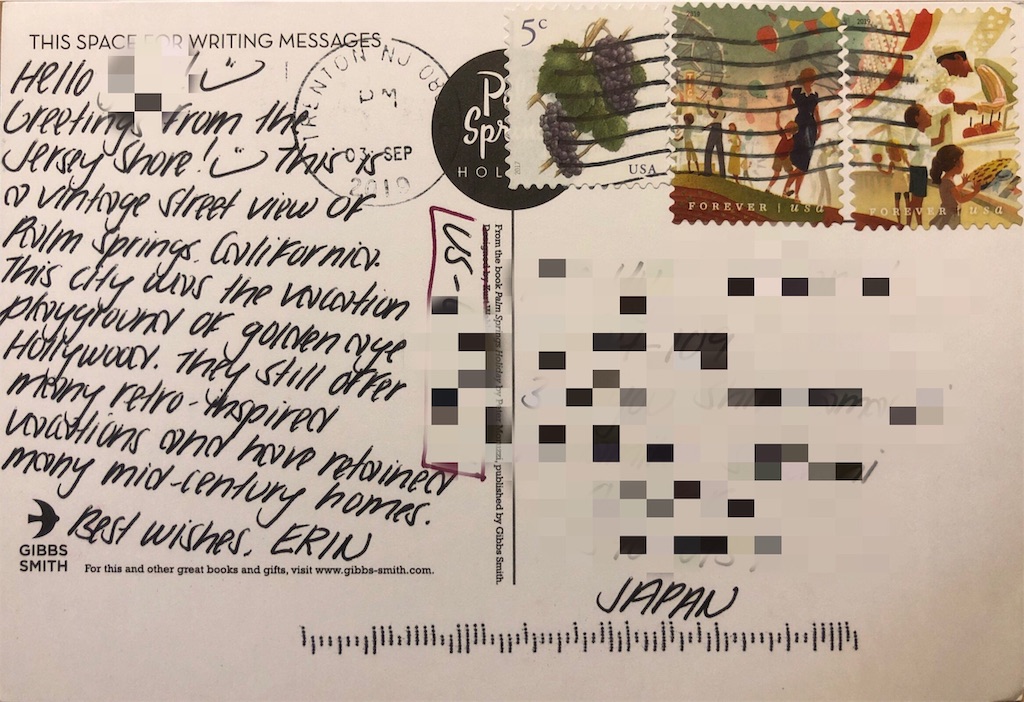 THIS SPACE FOR WRITING MESSAGES
Hello !
Greetings from the
Jersey Shore! This is
a vintage street view of
Palm Springs, California.
This city was the vacation
playground of golden age
Hollywood. They still offer
many retro-inspired
vacations and have retained
many mid-century homes.
Best wishes, ERIN
GIBBS
SMITH
For this and other great books and gifts, visit www.gibbs-smith.com.
TRENTON NJ 08
PM
03 SEP
2019
5c
USA
2018
FOREVER | usa
2019
FOREVER | usa
US-
From the book Palm Springs Holiday by published by Gibbs Smith.
Designed by Kurt
JAPAN